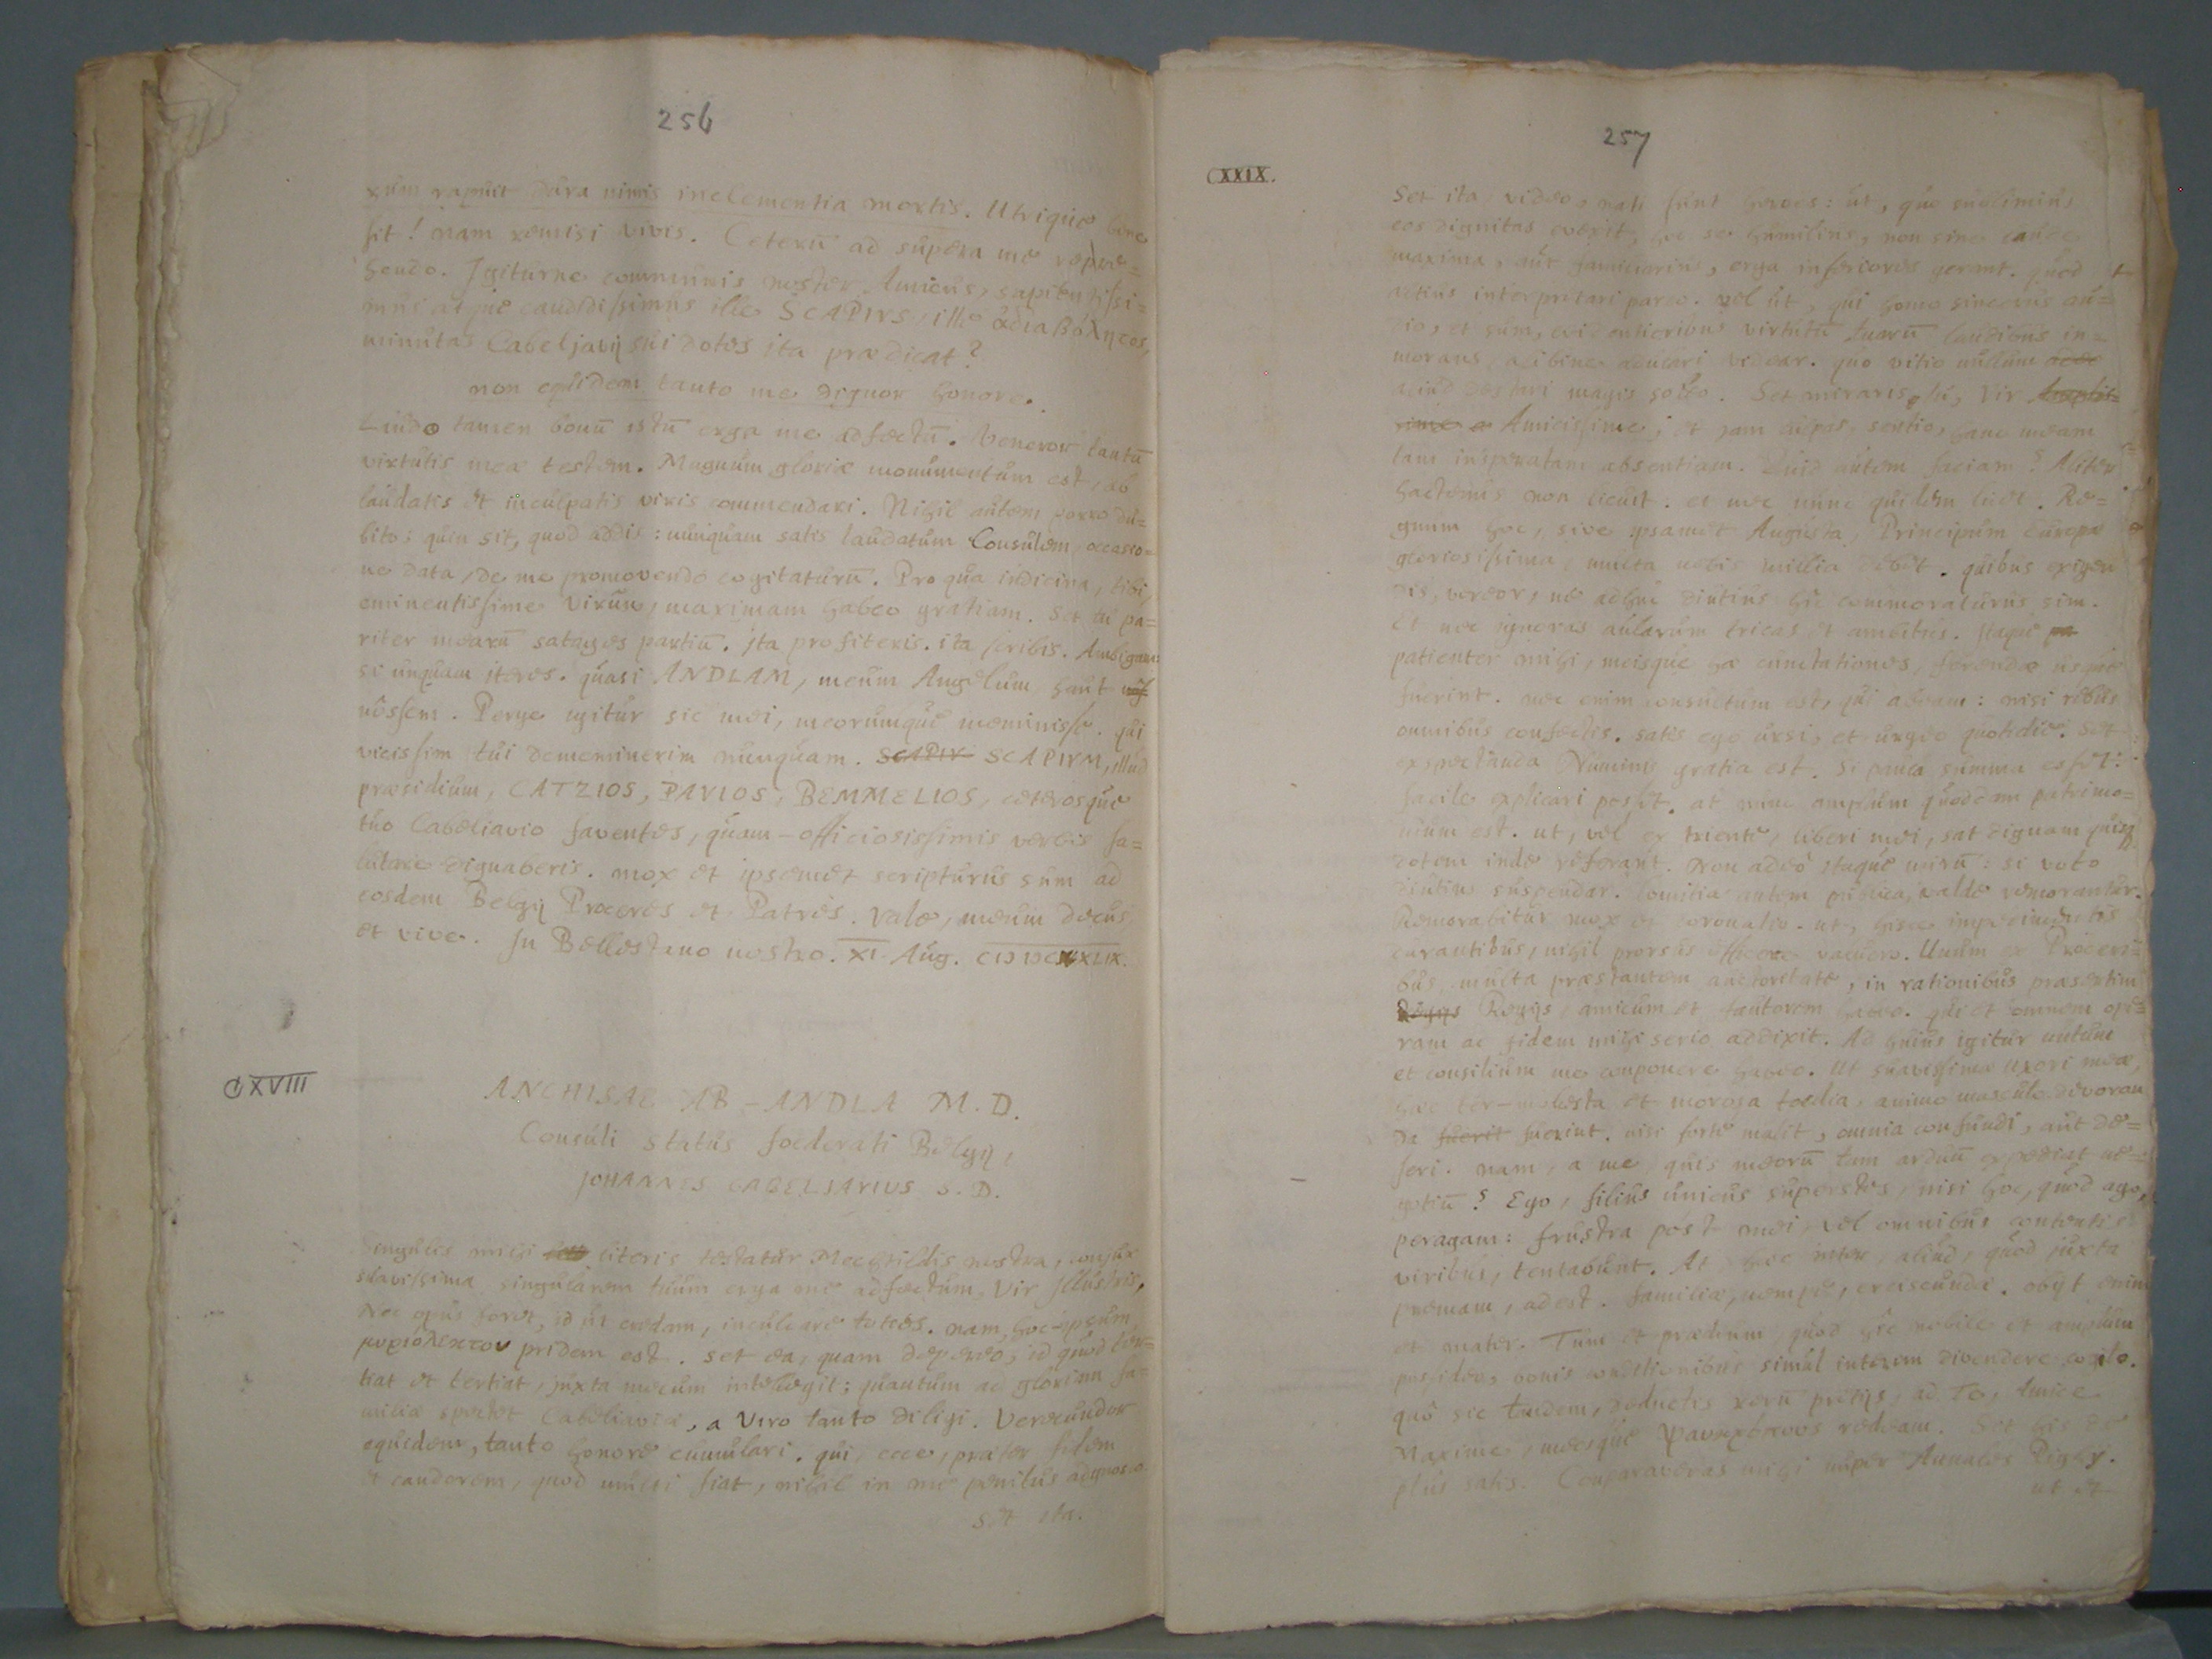 256
rum rapuit dura nimis inclementia mortis. Utrique bene
sit! nam remisi vivis. Ceterū ad supera me repre=
hendo. Igiturne communis noster Amicus, sapientissi=
mus atque candidissimus ille SCAPIVS, ille ἀδιαβόλητος,
minutas Cabeljavij sui dotes ita prædicat?
non equidem tanto me dignor honore.
Laudo tamen bonū istū erga me adfectū. Veneror tantū
virtutis meæ testem. Magnum gloriæ monumentum est, ab
laudatis et inculpatis viris commendari. Nihil autem porro du=
bito: quin sit, quod addis: nunquam satis laudatum Consulem, occasio=
ne data, de me promovendo cogitaturū. Pro qua indicina, tibi,
eminentissime Virûm, maximam habeo gratiam. Set tu pa=
riter mearū satages partiū. Ita profiteris. ita scribis. Ambigam
si unquam iteres. quasi ANDLAM, meum Angelum, haut
nôssem. Perge igitur sic mei, meorumque meminisse. qui
vicissim tui dememinerim nunquam. SCAPIV SCAPIVM, illud
præsidium, CATZIOS, PAVIOS, BEMMELIOS, ceterosque
tuo Cabeliavio faventes, quam-officiosissimis verbis sa=
lutare dignaberis. mox et ipsemet scripturus sum ad
eosdem Belgij Proceres et Patres. Vale, meum decus
et vive. In Bellestano nostro. XI. Aug.
CXVIII
ANCHISAE AB-ANDLA M.D.
Consuli status foederati Belgij,
JOHANNES CABELIAVIUS S.D.
Singulis mihi literis testatur Mechtildis nostra, conjux
suavissima singularem tuum erga me adfectum, Vir Illustris.
Nec opus foret, id ut credam, inculcare toties. nam, hoc-ipsum
μυριόλεκτον pridem est. set ea, quam depereo, id quod ter=
tiat et tertiat, juxta mecum intellegit; quantum ad gloriam fa=
miliæ spectet Cabeliaviæ, a Viro tanto diligi. Verecundor
equidem, tanto honore cumulari. qui, ecce, præter fidem
et candorem, quod unici fiat, nihil in me penitus adgnosco.
set ita.
257
CXXIX.
Set ita, video, nati sunt heroes: ut, quo sublimius
eos dignitas evexit, hoc se humilius, non sine laude
maxima, aut familiarius, erga inferiores gerant. quod
vetius interpretari pargo. vel ut, qui homo sincerus au=
dio, et sum, evidentioribus virtutū tuarū laudibus in=
morans, tibine adulari videar. quo vitio nullum
aliud destari magis soleo. Set miraris, tu, Vir
Amicissime; et jam culpas, sentio, hanc meam
tam insperatam absentiam. Quid autem faciam? Aliter
hactenus non licuit. et nec nunc quidem licet. Re=
gnum hoc, sive ipsamet Augusta, Principum Europæ
gloriosissima, multa nobis millia debet. quibus exigen
dis, vereor, ne adhuc diutius hîc commoraturus sim.
Et nec ignoras aularum tricas et ambitus. Itaque pa
patienter mihi, meisque hæ cunctationes, ferendæ
fuerint. nec enim consultum est, qui abeam: nisi rebus
omnibus confectis. satis ego ursi, et urgeo quotidie. Set
exspectanda Numinis gratia est. Si pauca summa esset:
facile explicari posset. at nunc amplum quoddam patrimo=
nium est. ut, vel ex triente, liberi mei, sat dignam quisq
dotem inde referant. Non adeò itaque mirū: si voto
diutius suspendar. Comitia autem publica, valde remorantur.
Remorabitur mox et coronatio. ut, hisce impedimentis
curantibus, nihil prorsus efficere valuero. Unum ex Proceri=
bus, multa præstantem auctoritate, in rationibus præsertim
Regijs Regijs, amicum et fautorem habeo. qui et omnem ope=
ram ac fidem mihi serio addixit. Ad huius igitur nutum
et consilium me componere habeo. Ut suavissimæ uxori meæ,
hæc ter-molesta et morosa tædia, animo masculo devoran
da fuerit fuerint. nisi forte malit, omnia confundi, aut de=
seri. nam, a me, quis meorū tam arduū expediat ne=
gotiū? Ego, filius unicus superstes, nisi hoc, quod ago,
peragam: frustra pòst mei, vel omnibus contentis
viribus, tentabunt. At hoc inter, aliud, quod juxta
premam, adest. familiæ, nempe, erciscundæ. obijt enim
et mater. Tum et prædium, quod hîc nobile et amplum
possideo, bonis conditionibus simul interim divendere cogito.
quò sic tandem, reductis rerū pretijs, ad Te, Amice
Maxime, meosque redeam. Set his de
plus satis. Comparaveras mihi nuper Annales Pighy.
ut et